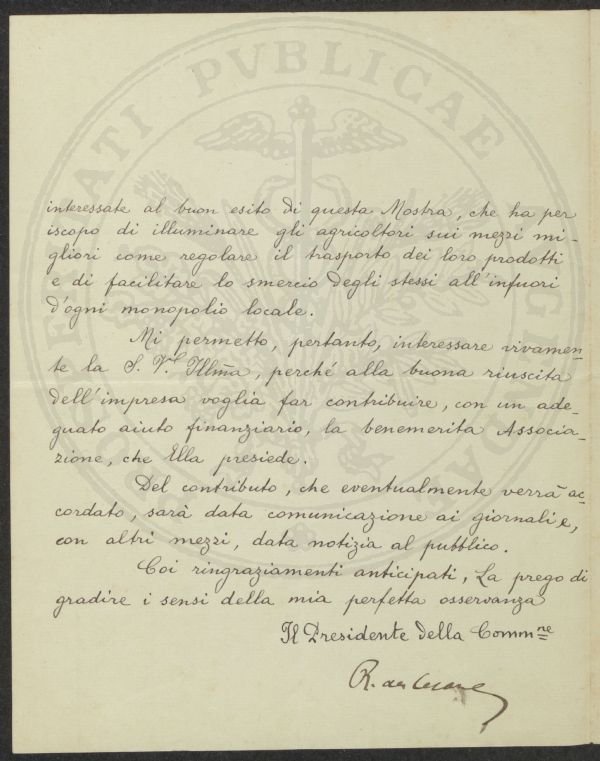 FELICITATI PVBLICAE
interessate al buon esito di questa Mostra, che ha per
iscopo di illuminare gli agricoltori sui mezzi mi-
gliori come regolare il trasporto dei loro prodotti
e di facilitare lo smercio degli stessi all'infuori
d'ogni monopolio locale.
Mi permetto, pertanto, interessare vivamen-
te la S. V. Illma, perché alla buona riuscita
dell'impresa voglia far contribuire, con un ade-
guato aiuto finanziario, la benemerita Associa-
zione, che Ella presiede.
Del contributo, che eventualmente verrà ac-
cordato, sarà data comunicazione ai giornali e,
con altri mezzi, data notizia al pubblico.
Coi ringraziamenti anticipati, La prego di
gradire i sensi della mia perfetta osservanza
Il Presidente della Commne
R. de Cesare